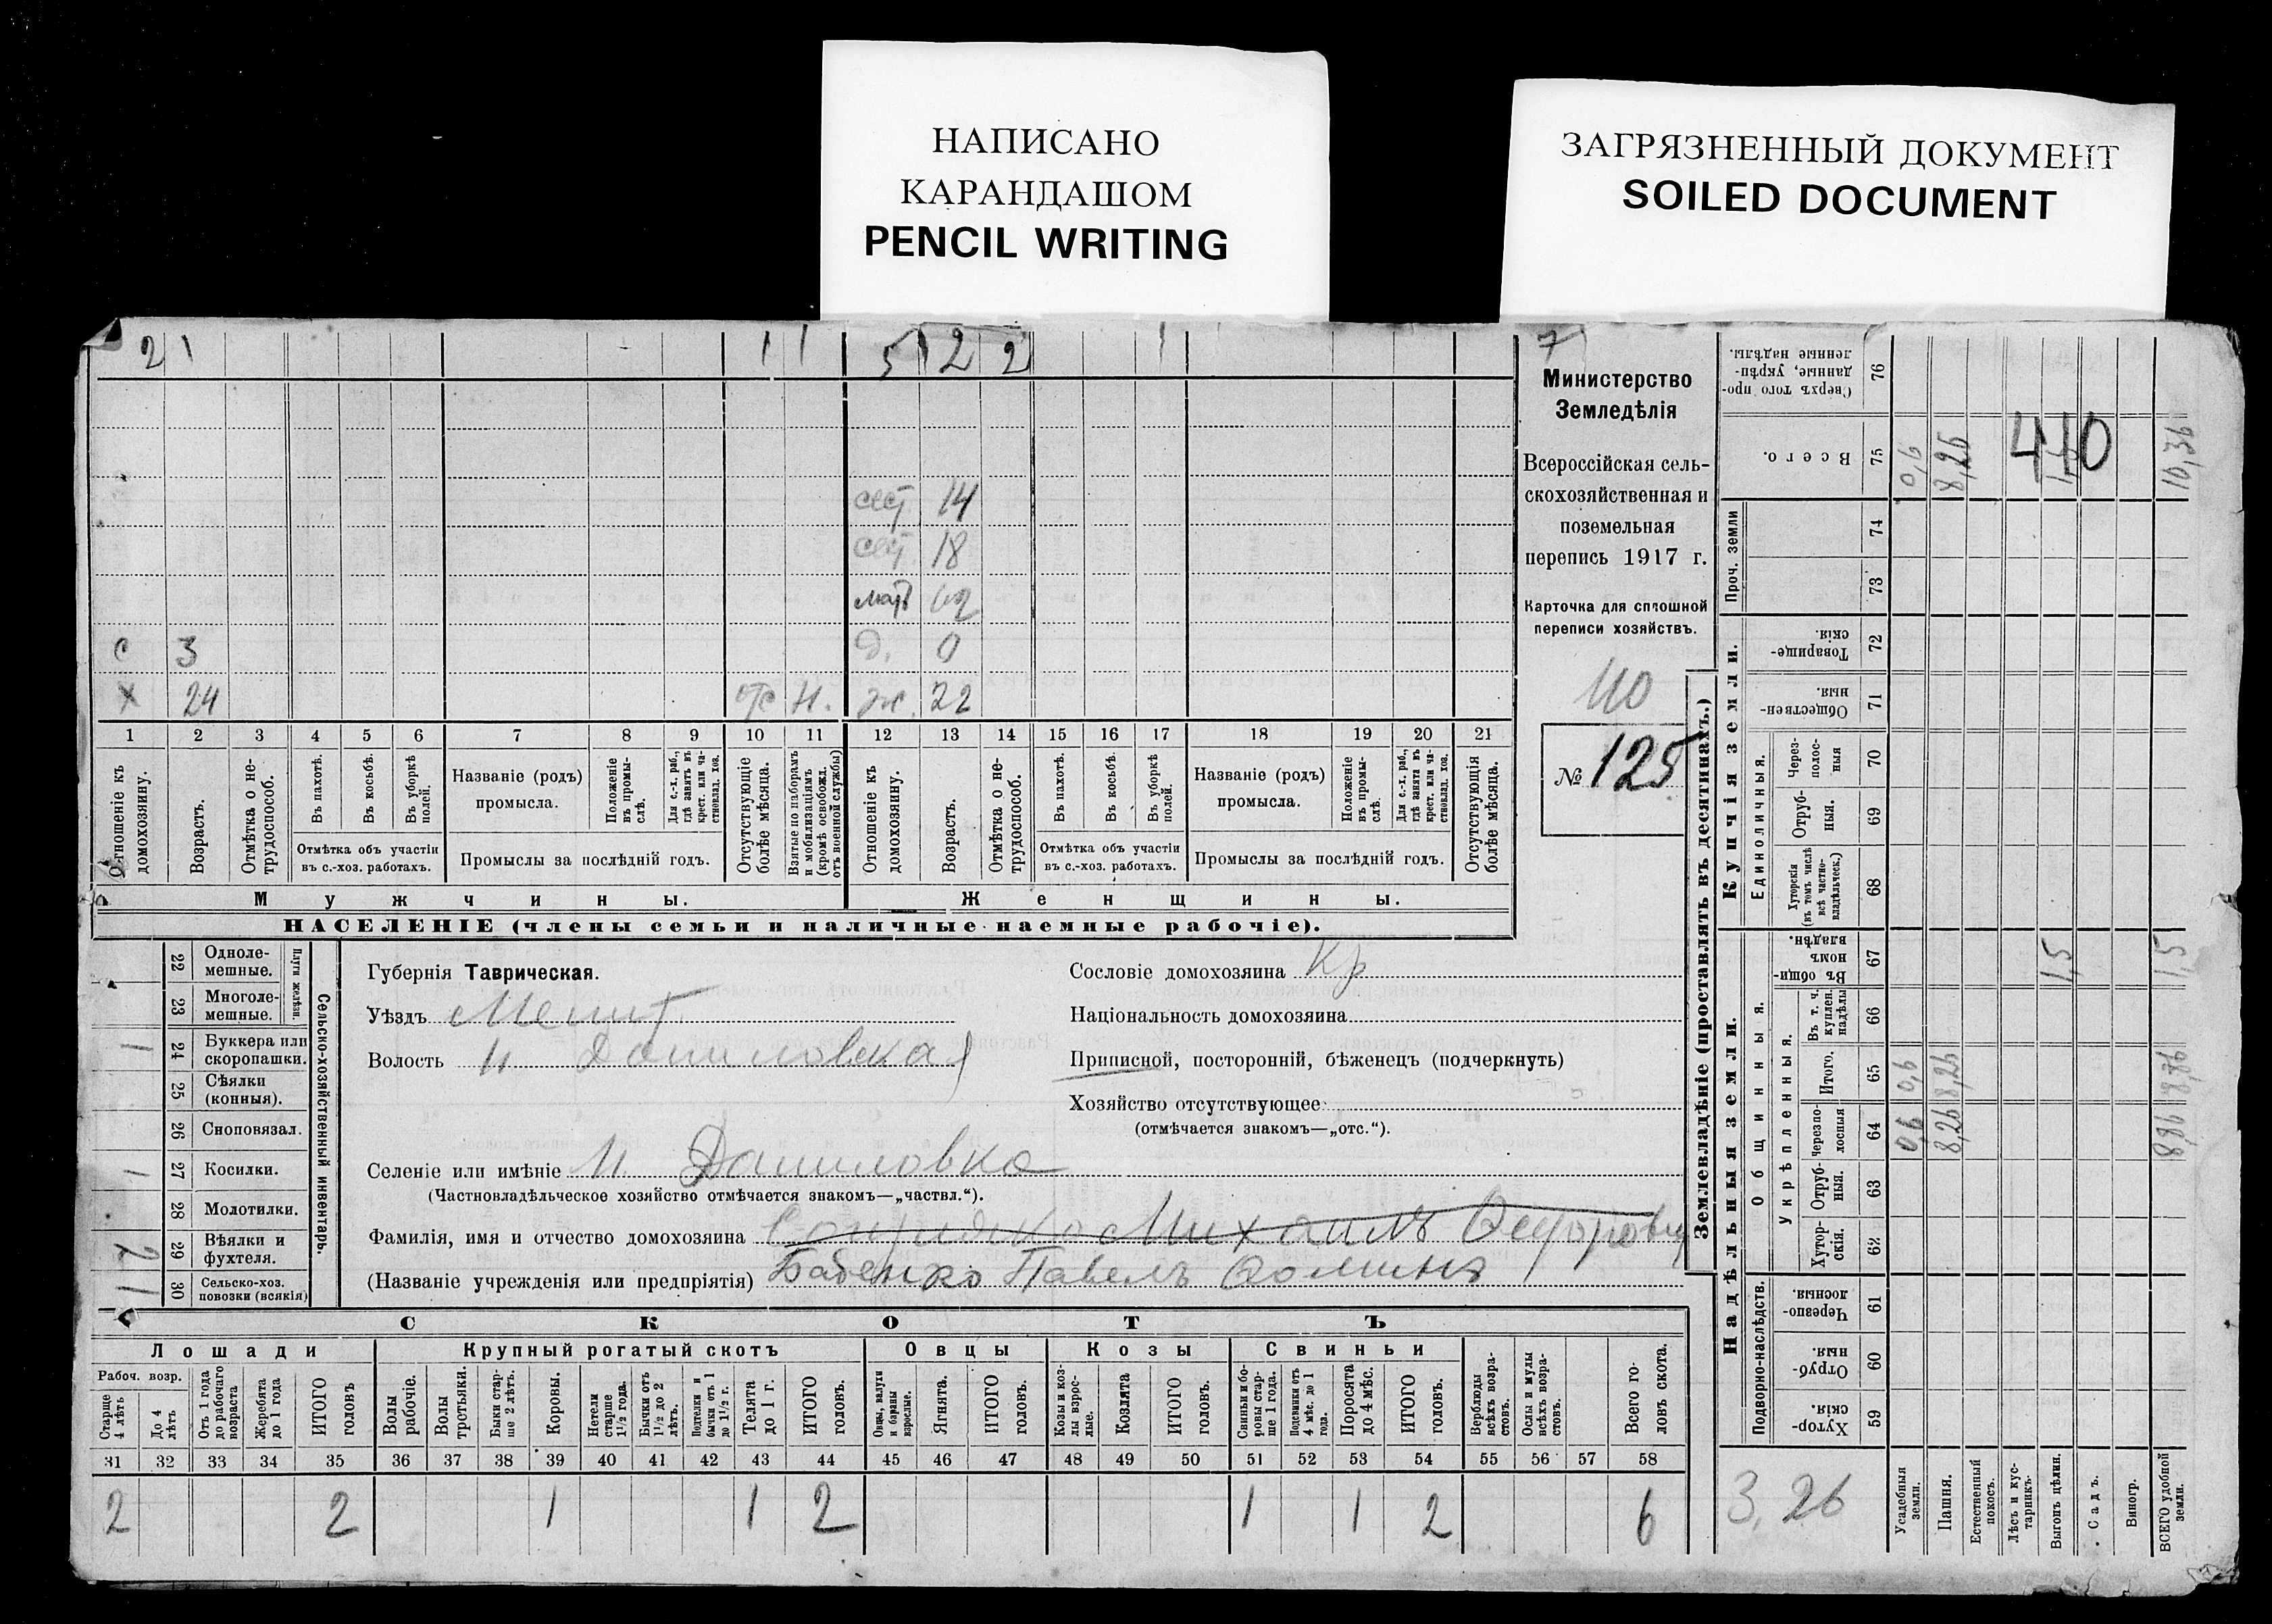 НАПИСАНО
КАРАНДАШОМ
PENCIL WRITING
ЗАГРЯЗНЕННЫЙ ДОКУМЕНТ
SOILED DOCUMENT
2 1 1 1 5 2 2 1
сест 14
сест 18
мать 62
с 3 д. 0
х 24 отс н. ж. 22
1 2 3 4 5 6 7 8 9 10 11 12 13 14 15 16 17 18 19 20 21
Отношеніе къ домохозяину.
Возрастъ.
Отмѣтка о нетрудоспособ.
Въ пахотѣ.
Въ косьбѣ.
Въ уборкѣ полей.
Отмѣтка объ участіи въ с.-хоз. работахъ.
Названіе (родъ) промысла.
Положеніе въ промыслѣ.
Для с.-х. раб., гдѣ занятъ въ крест. или частновлад. хоз.
Промыслы за послѣдній годъ.
Отсутствующіе болѣе мѣсяца.
Взятые по наборамъ и мобилизаціямъ (кромѣ освобожд. отъ военной службы)
Отношеніе къ домохозяину.
Возрастъ.
Отмѣтка о нетрудоспособ.
Въ пахотѣ.
Въ косьбѣ.
Въ уборкѣ полей.
Отмѣтка объ участіи въ с.-хоз. работахъ.
Названіе (родъ) промысла.
Положеніе въ промыслѣ.
Для с.-х. раб., гдѣ занята въ крест. или частновлад. хоз.
Промыслы за послѣдній годъ.
Отсутствующія болѣе мѣсяца.
Мужчины. Женщины.
НАСЕЛЕНІЕ (члены семьи и наличные наемные рабочіе).
7
Министерство
Земледѣлія
Всероссійская сель-
скохозяйственная и
поземельная
перепись 1917 г.
Карточка для сплошной
переписи хозяйствъ.
110
№ 125
22 Однолемешные.
23 Многолемешные.
Плуги желѣзн.
1 24 Буккера или скоропашки.
25 Сѣялки (конныя).
26 Сноповязал.
1 27 Косилки.
28 Молотилки.
29 Вѣялки и фухтеля.
30 Сельско-хоз. повозки (всякія)
Сельско-хозяйственный инвентарь.
Губернія Таврическая.
Уѣздъ Мелит
Волость Н Даниловская
Селеніе или имѣніе Н Даниловка
(Частновладѣльческое хозяйство отмѣчается знакомъ—„частвл.“).
Фамилія, имя и отчество домохозяина Михаилъ
(Названіе учрежденія или предпріятія) Бабенко Павелъ
Сословіе домохозяина Кр
Національность домохозяина
Приписной, посторонній, бѣженецъ (подчеркнуть)
Хозяйство отсутствующее
(отмѣчается знакомъ—„отс.“).
СКОТЪ
Лошади Крупный рогатый скотъ Овцы Козы Свиньи
Рабоч. возр.
Старше 4 лѣтъ
До 4 лѣтъ
Отъ 1 года до рабочаго возраста
Жеребята до 1 года
ИТОГО головъ
Волы рабочіе.
Волы третьяки.
Быки старше 2 лѣтъ.
Коровы.
Нетели старше 1½ года.
Бычки отъ 1½ до 2 лѣтъ.
Подтелки и бычки отъ 1 до 1½ г.
Телята до 1 г.
ИТОГО головъ.
Овцы, валухи и бараны взрослые.
Ягнята.
ИТОГО головъ.
Козы и козлы взрослые.
Козлята
ИТОГО головъ.
Свиньи и боровы старше 1 года.
Подсвинки отъ 4 мѣс. до 1 года.
Поросята до 4 мѣс.
ИТОГО головъ.
Верблюды всѣхъ возрастовъ.
Ослы и мулы всѣхъ возрастовъ.
Всего головъ скота.
31 32 33 34 35 36 37 38 39 40 41 42 43 44 45 46 47 48 49 50 51 52 53 54 55 56 57 58
2 2 1 1 2 1 1 2 6
Землевладѣніе (проставлять въ десятинахъ.)
Купчія земли.
Надѣльныя земли.
Сверхъ того проданные, укрѣпленные надѣлы. 76
Всего. 75 0,6 8,26 1,5 10,36
440
Проч. земли 74
73
Товарищескія. 72
Общественныя. 71
Единоличныя.
Черезполосныя 70
Отрубныя. 69
Хуторскія (въ томъ числѣ всѣ частновладѣльческ.) 68
Общинныя.
Въ общинномъ владѣн. 67 1,5 1,5
Укрѣпленныя.
Въ т. ч. куплен. надѣлы 66
Итого. 65 0,6 8,26 8,86
Черезполосныя 64 0,6 8,26 8,86
Отрубныя. 63
Хуторскія. 62
Подворно-наслѣдств.
Черезполосныя. 61
Отрубныя. 60
Хуторскія. 59
3,26
Усадебныя земли.
Пашня.
Естественный покосъ.
Лѣсъ и кустарникъ.
Выгонъ цѣлин.
Садъ.
Виногр.
ВСЕГО удобной земли.